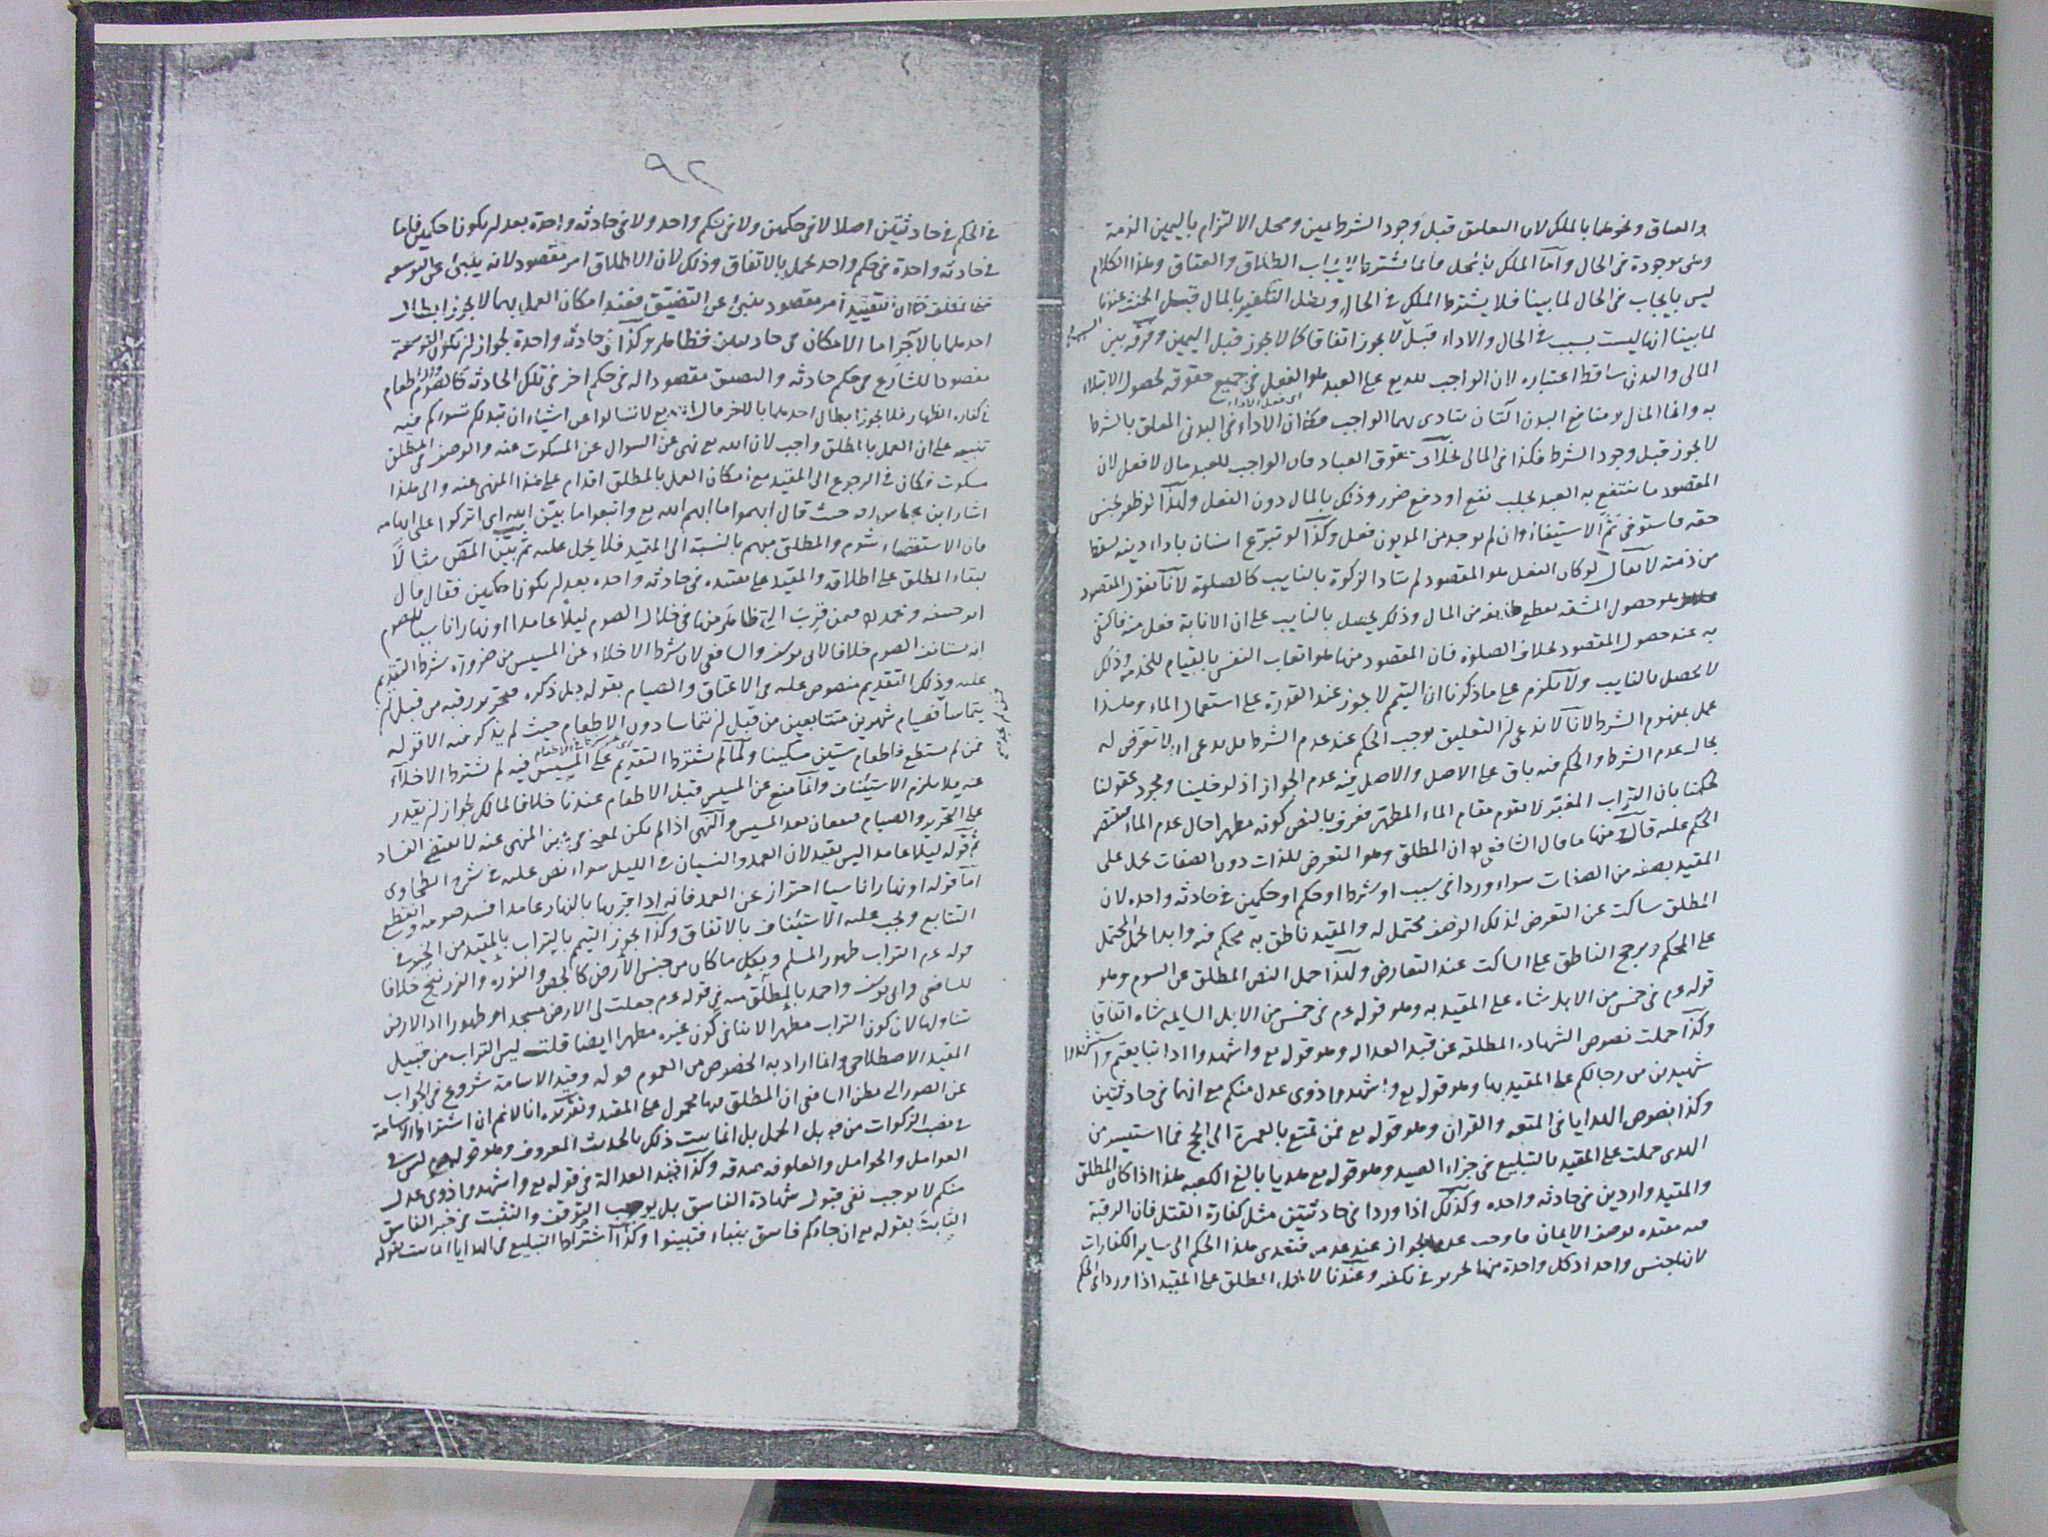 والعتاق ونحوهما بالملك لان التعليق قبل وجود الشرط يمين ومحل الالتزام باليمين الذمة
وهى موجودة فى الحال وأما الملك فانما يشترط لايجاب الطلاق والعتاق وهذا الكلام
ليس بايجاب فى الحال لما بينا فلا يشترط الملك فى الحال وبطل التكفير بالمال قبل الحنث عندنا
لما بينا انها ليست بسبب فى الحال والاداء قبل لا يجوز اتفاقا كما لا يجوز قبل اليمين وفرقه بين
المالى والبدنى ساقط اعتباره لان الواجب لله تع على العبد هو الفعل فى جميع حقوقه لحصول الابتلاء
به وانما المال ومنافع البدن آلتان يتادى بهما الواجب فكما ان الاداء فى البدنى المعلق بالشرط
لا يجوز قبل وجود الشرط فكذا فى المالى بخلاف حقوق العباد فان الواجب للعبد مال لا فعل لان
المقصود ما ينتفع به العبد بجلب نفع او دفع ضرر وذلك بالمال دون الفعل ولهذا لو ظفر بجنس
حقه فاستوفى تم الاستيفاء وان لم يوجد من المديون فعل وكذا لو تبرع انسان باداء دينه سقط
من ذمته لا يقال لو كان الفعل هو المقصود لم يتاد الزكوة بالنايب كالصلوة لانا نقول المقصود
هو حصول المشقه بقطع طايفه من المال وذلك يحصل بالنايب على ان الانابة فعل منه فاكتفى
به عند حصول المقصود بخلاف الصلوة فان المقصود منها هو اتعاب النفس بالقيام للخدمه وذلك
لا يحصل بالنايب ولا يلزم على ما ذكرنا ان التيمم لا يجوز عند القدرة على استعمال الماء وهذا
عمل بمفهوم الشرط لانا لا ندعى ان التعليق يوجب الحكم عند عدم الشرط بل ندعى انه لا تعرض له
بحال عدم الشرط والحكم فيه باق على الاصل والاصل فيه عدم الجواز اذ لو خلينا ومجرد عقولنا
لحكمنا بان التراب المغبر لا يقوم مقام الماء المطهر فعرف بالنص كونه مطهرا حال عدم الماء فيقتصر
الحكم عليه قال ومنها ما قال الشافعى ان المطلق وهو المتعرض للذات دون الصفات يحمل على
المقيد بصفه من الصفات سواء وردا فى سبب او شرط او حكم او حكمين فى حادثه واحده لان
المطلق ساكت عن التعرض لذلك الوصف محتمل له والمقيد ناطق به محكم فيه وابدا يحمل المحتمل
على المحكم ويرجح الناطق على الساكت عند التعارض ولهذا حمل النص المطلق عن السوم وهو
قوله عم فى خمس من الابل شاه على المقيد به وهو قوله عم فى خمس من الابل السايمه شاه اتفاقا
وكذا حملت نصوص الشهادة المطلقه عن قيد العداله وهو قوله تع واشهدوا اذا تبايعتم واستشهدوا
شهيدين من رجالكم على المقيد بها وهو قوله تع واشهدوا ذوى عدل منكم مع انها فى حادثتين
وكذا نصوص الهدايا فى المتعه والقران وهو قوله تع فمن تمتع بالعمرة الى الحج فما استيسر من
الهدى حملت على المقيد بالتبليغ فى جزاء الصيد وهو قوله تع هديا بالغ الكعبه هذا اذا كان المطلق
والمقيد واردين فى حادثه واحده وكذلك اذا وردا فى حادثتين مثل كفارة القتل فان الرقبة
فيه مقيده بوصف الايمان فاوجب عدم الجواز عند عدمه فتعدى هذا الحكم الى ساير الكفارات
لانها جنس واحد اذ كل واحدة منها تحرير فى تكفير وعندنا لا يحمل المطلق على المقيد اذا وردا فى الحكم
٩٢
فى الحكم فى حادثتين اصلا لا فى حكمين ولا فى حكم واحد ولا فى حادثه واحدة بعد ان يكونا حكمين فاما
فى حادثه واحدة فى حكم واحد يحمل بالاتفاق وذلك لان الاطلاق امر مقصود لانه ينبئ عن التوسعه
كما ان التقييد أمر مقصود ينبئ عن التضييق فعند امكان العمل بهما لا يجوز ابطال
احدهما بالآخر اما الامكان فى حادثتين فظاهر وكذا فى حادثه واحدة لجواز ان يكون التوسعة
مقصودا للشارع فى حكم حادثه والتضييق مقصودا له فى حكم اخر فى تلك الحادثه كالصوم والاطعام
فى كفارة الظهار فلا يجوز ابطال احدهما بالاخر قال الله تع لا تسالوا عن اشياء ان تبدلكم تسؤكم فيه
تنبيه على ان العمل بالمطلق واجب لان الله تع نهى عن السوال عن المسكوت عنه والوصف فى المطلق
مسكوت فكان فى الرجوع الى المقيد مع امكان العمل بالمطلق اقدام على هذا المنهى عنه والى هذا
اشار ابن عباس رضه حيث قال ابهموا ما ابهم الله تع واتبعوا ما بين الله اى اتركوا على ابهامه
فان الاستقصاء شوم والمطلق مبهم بالنسبة الى المقيد فلا يحمل عليه ثم بين المص مثالا
لبقاء المطلق على اطلاقه والمقيد على تقييده فى حادثه واحده بعد ان يكونا حكمين فقال قال
ابو حنيفه ومحمد فيمن قرب التى ظاهر منها فى خلال الصوم ليلا عامدا او نهارا ناسيا للصوم
انه يستانف الصوم خلافا لابى يوسف والشافعى لان شرط الاخلاء عن المسيس من ضرورة شرط التقديم
عليه وذلك التقديم منصوص عليه فى الاعتاق والصيام بقوله جل ذكره فتحرير رقبه من قبل ان
يتماسا فصيام شهرين متتابعين من قبل ان يتماسا دون الاطعام حيث لم يذكر فيه الا قوله
فمن لم يستطع فاطعام ستين مسكينا ولما لم يشترط التقديم على المسيس فيه لم يشترط الاخلاء
عنه فلا يلزم الاستيناف وانما منع عن المسيس قبل الاطعام عندنا خلافا لمالك لجواز ان يقدر
على التحرير والصيام فيقعان بعد المسيس والنهى اذا لم يكن لمعنى فى عين المنهى عنه لا يقتضى الفساد
ثم قوله ليلا عامدا ليس بقيد لان العمد والنسيان فى الليل سواء نص عليه فى شرح الطحاوى
أما قوله او نهارا ناسيا احتراز عن العمد فانه اذا قربها بالنهار عامدا فسد صومه وانقطع
التتابع ويجب عليه الاستيناف بالاتفاق وكذا يجوز التيمم بالتراب بالمقيد من الخبر فى
قوله عم التراب طهور المسلم وبكل ما كان من جنس الأرض كالجص والنوره والزرنيخ خلافا
للشافعى وابى يوسف واحمد بالمطلق منه فى قوله عم جعلت لى الارض مسجدا وطهورا اذ الارض
تتناولها لان كون التراب مطهرا لا ينافى كون غيره مطهرا ايضا قلت ليس التراب من قبيل
المقيد الاصطلاحى وانما اراد به الخصوص من العموم قوله وقيد الاسامة شروع فى الجواب
عن الصور التى يظن الشافعى ان المطلق فيها محمول على المقيد وتقريره انا لا نم ان اشتراط الاسامة
فى نصب الزكوات من قبيل الحمل بل انما يثبت ذلك بالحديث المعروف وهو قوله عم ليس فى
العوامل والحوامل والعلوفه صدقه وكذا قيد العدالة فى قوله تع واشهدوا ذوى عدل
منكم لا يوجب نفى قبول شهادة الفاسق بل يوجب التوقف والتثبت فى خبر الفاسق
الثابت بقوله تع ان جاءكم فاسق بنباء فتبينوا وكذا اشتراط التبليغ فى الهدايا انما يثبت بقوله